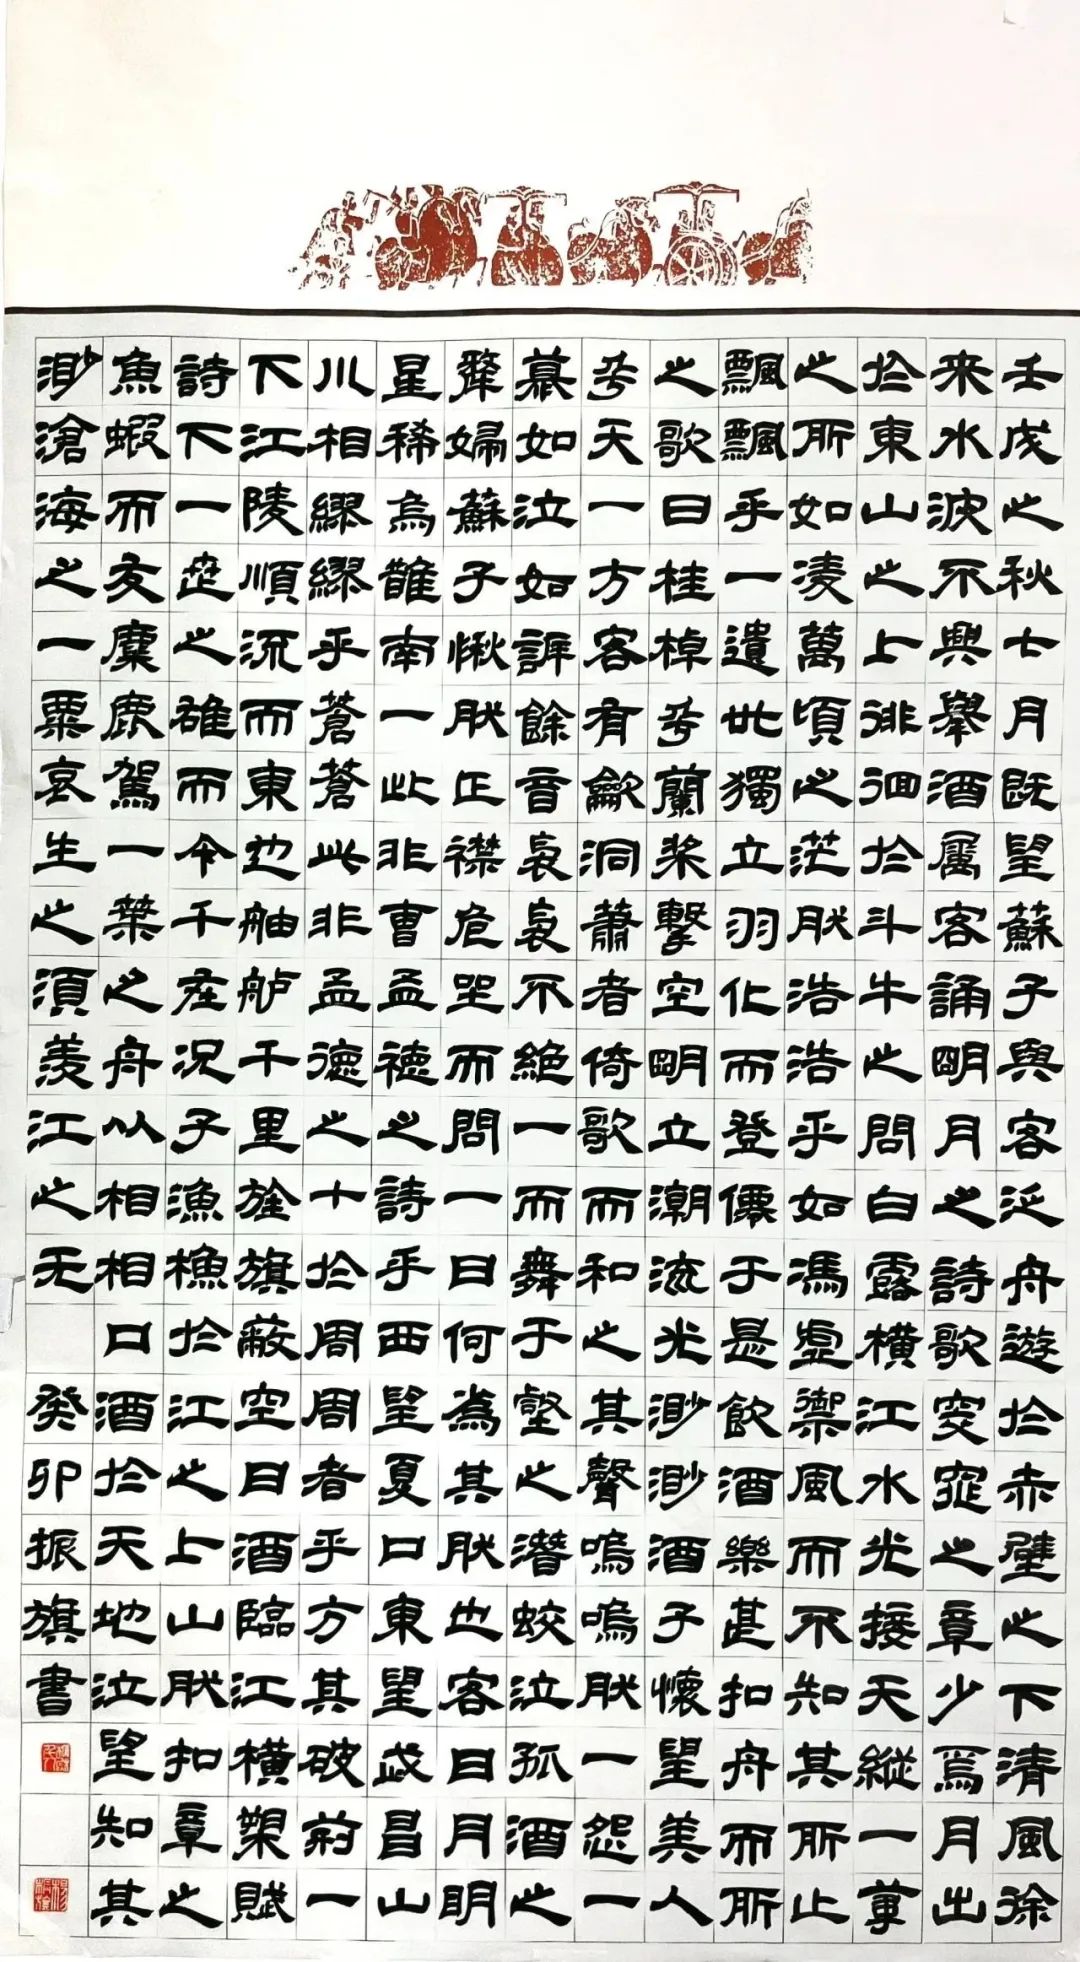 壬戌之秋七月既望蘇子與客泛舟遊於赤壁之下清風徐
來水波不興舉酒屬客誦明月之詩歌窈窕之章少焉月出
於東山之上徘徊於斗牛之問白露橫江水光接天縱一葦
之所如凌萬頃之茫然浩浩乎如馮虛禦風而不知其所止
飄飄乎一遺世獨立羽化而登僊于是飲酒樂甚扣舟而所
之歌曰桂棹兮蘭槳擊空明立潮流光渺渺酒子懷望美人
兮天一方客有歈洞蕭者倚歌而和之其聲嗚嗚然一怨一
慕如泣如訴餘音哀哀不絕一而舞于壑之潛蛟泣孤酒之
嫠婦蘇子愀然正襟危坐而問一日何為其然也客日月明
星稀烏鵲南一此非曹孟德之詩乎西望夏口東望武昌山
川相繆繆乎蒼蒼此非孟德之十於周周者乎方其破荊一
下江陵順流而東也舳艫千里旌旗蔽空日酒臨江橫槊賦
詩下一世之雄而今千座況子漁樵於江之上山然扣章之
魚蝦而友麋鹿駕一葉之舟以相相口酒於天地泣望知其
渺滄海之一粟哀生之須羨江之无
癸卯振旗書